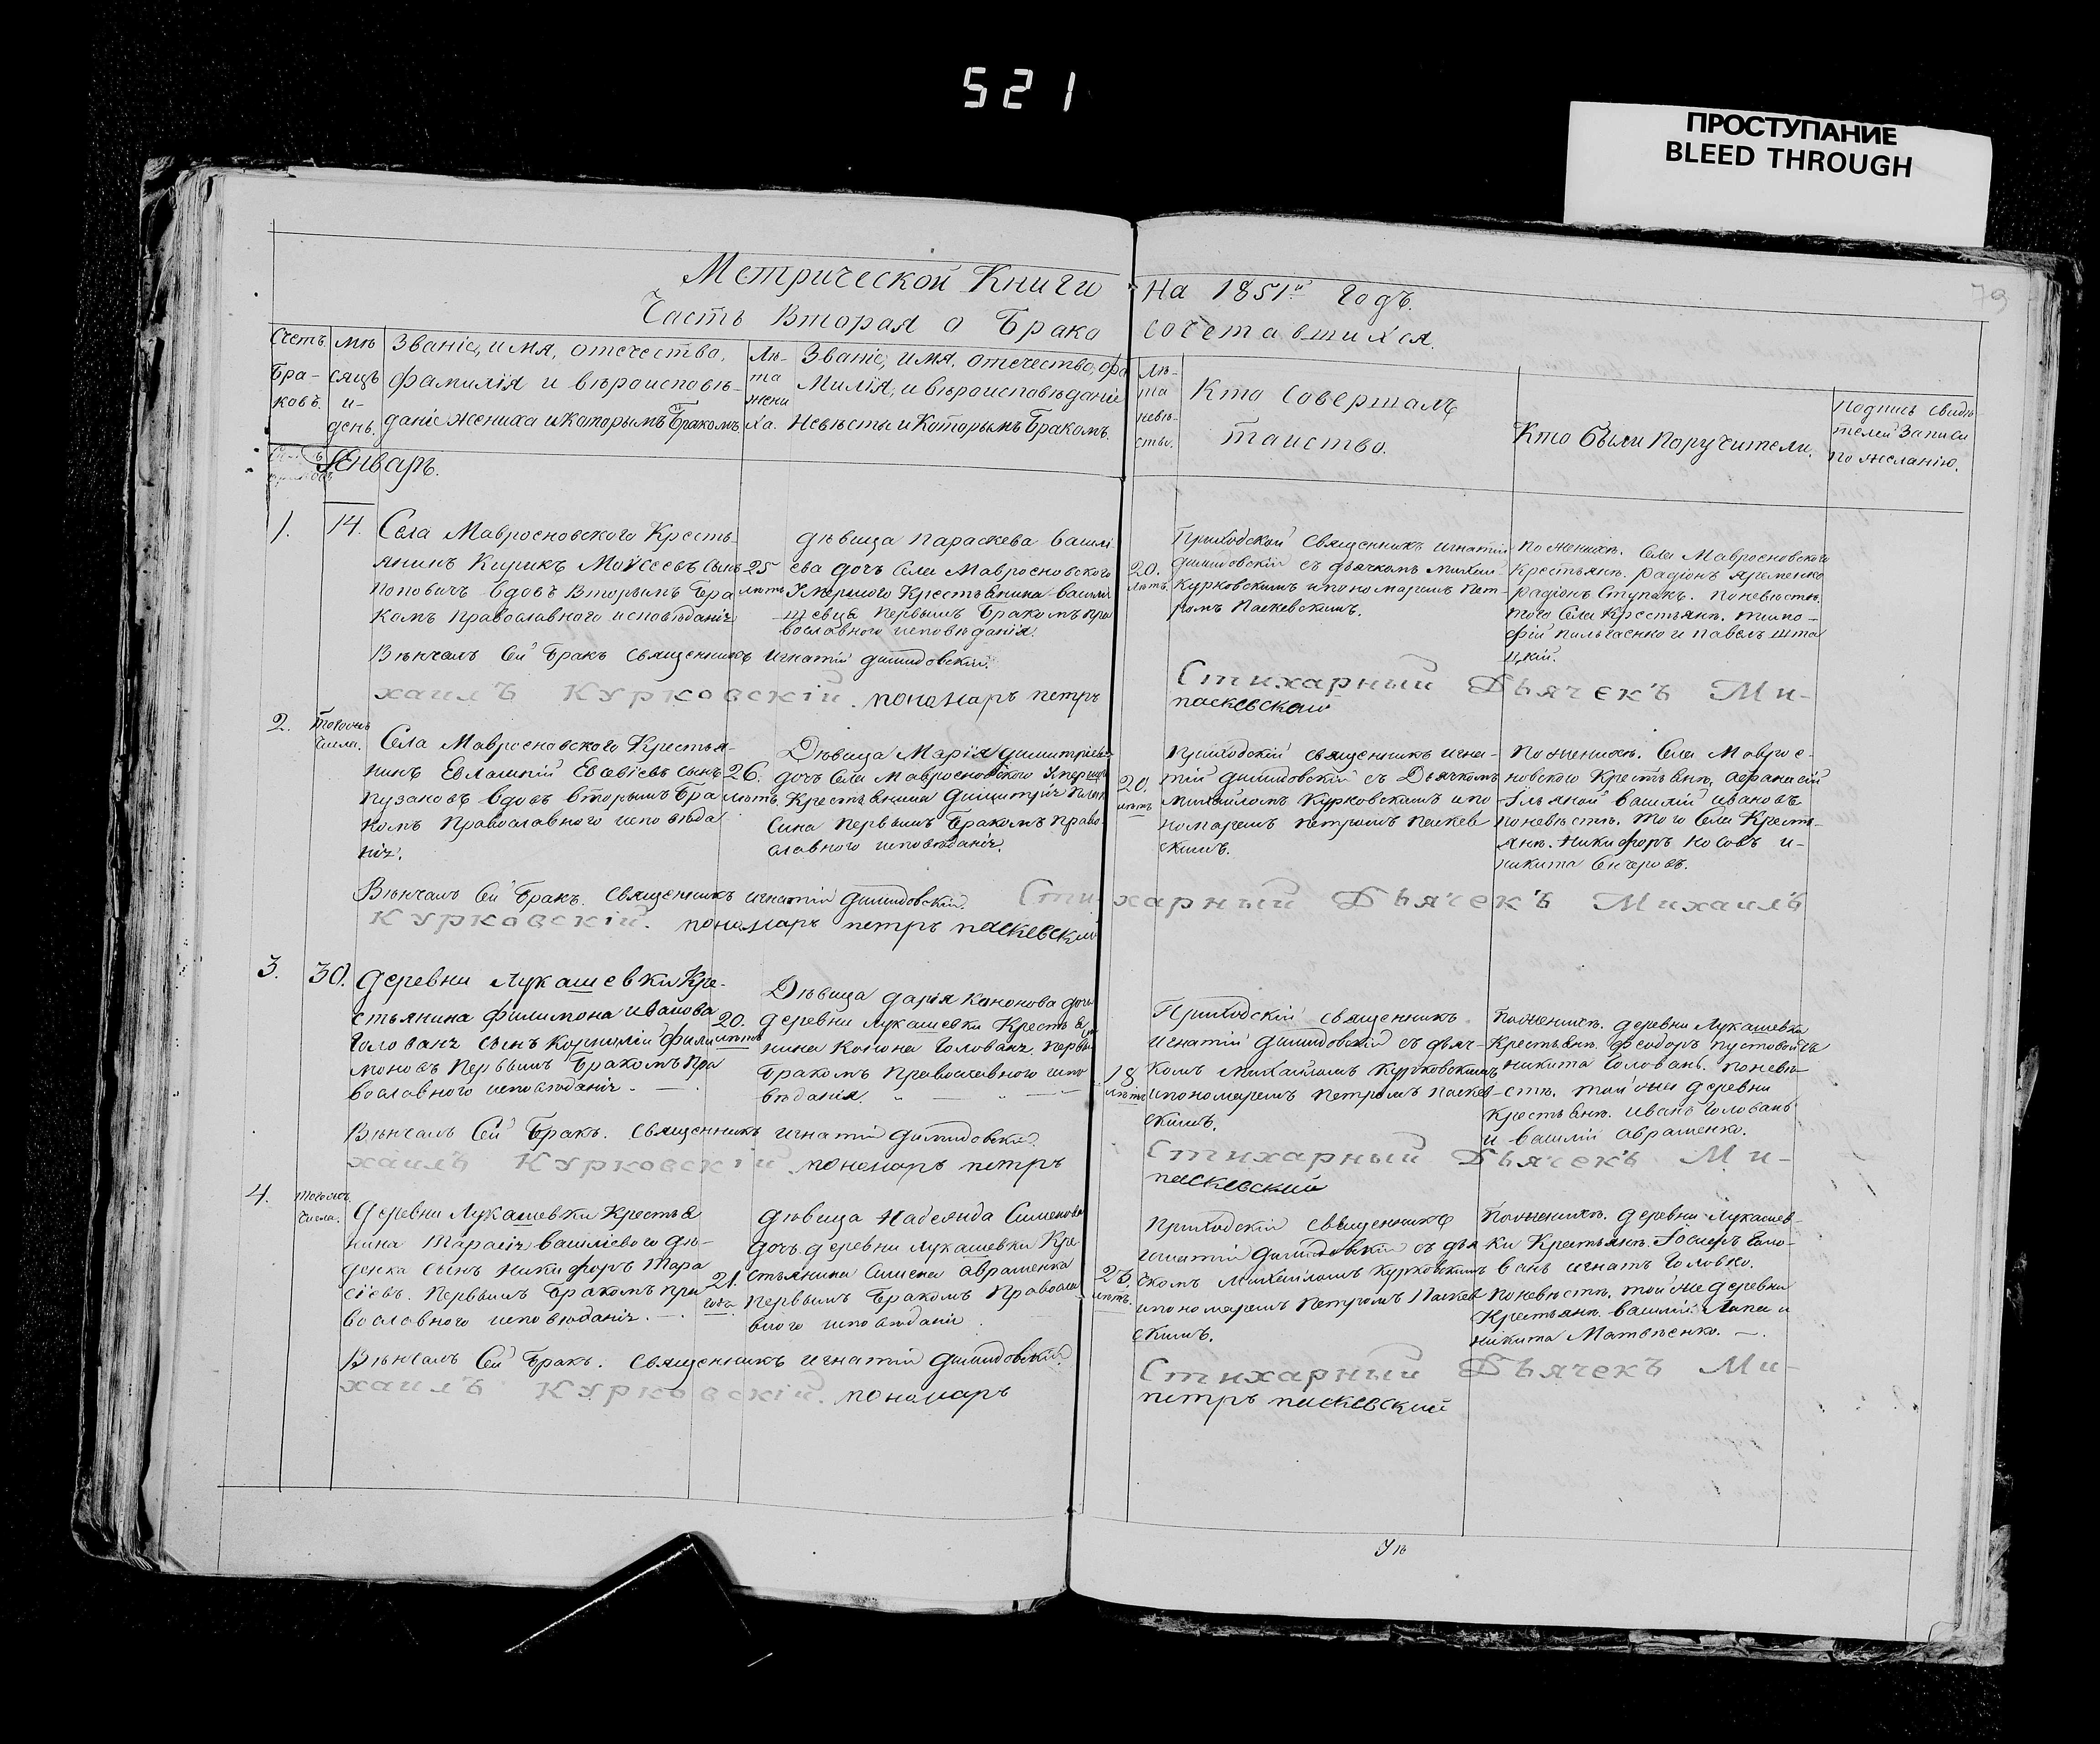 521
ПРОСТУПАНИЕ
BLEED THROUGH
79
Метрической Книги на 1851й годъ.
Часть Вторая о Брако сочетавшихся.
Счетъ
Бра-
ковъ.
мѣ
сяцъ
и-
день.
Званіе, имя, отечество,
фамилія и вѣроисповѣ-
даніе жениха и Которымъ Бракомъ.
Лѣ-
та
жени
ха.
Званіе, имя, отечество, фа
милія, и вѣроисповѣданіе
Невѣсты и Которымъ Бракомъ.
Лѣ-
та
невѣ-
сты.
Кто Совершалъ
таинство.
Кто были Поручители.
Подпись свидѣ
телей Записи
по желанію.
Январь.
1.
14.
Села Мавросновского Кресть-
янинъ Кирикъ Моѵсеевъ сынъ
Поповичъ вдовъ Вторымъ Бра
комъ Православного исповѣданія
25
лѣтъ
Дѣвица Параскева Васиlі
ева дочь Села Мавросновского
Умершого Крестьянина Васили
Первымъ Бракомъ Пра
вославного исповѣданія.
20.
лѣтъ.
Приходской Священникъ Игнатій
Димидовскій съ дьячкомъ Михаи
Курковскимъ и пономаремъ Пет-
ромъ Паскевскимъ.
По женихѣ. Села Мавросновского
Крестьянѣ. Радіонъ Яременко
Радіонъ Ступакъ. По невѣстѣ.
того Села Крестьянѣ. Тимо-
фій Пильгаенко и Павелъ Шта
цкій.
Вѣнчалъ Сей Бракъ Священникъ Игнатій Димидовскій. Стихарный Дьячекъ Ми-
хаилъ Курковскій. пономаръ петръ паскевский
2.
Тогожъ
Числа.
Села Мавросновского Крестья-
нинъ Евлампій Евсевіевъ сынъ
Пузановъ вдовъ вторымъ Бра
комъ Православного исповѣда
нія.
26.
лѣтъ.
Дѣвица Марія Димитріева
дочь Села Мавросновского Умерш
Крестьянина Димитрія
сина Первымъ Бракомъ Право-
славного исповѣданія.
20.
лѣтъ
Приходскій священникъ Игна-
тій Димидовскій съ Дьячкомъ
Михайломъ Курковскимъ и по
номаремъ Петромъ Паскев
скимъ.
По женихѣ. Села Маврос-
новского Крестьянѣ. Афанасій
Ильяной Василій Ивановъ
По невѣстѣ. того Села Кресть-
янѣ. Никифоръ Носовъ и-
Никита
Вѣнчалъ Сей Бракъ. Священникъ Игнатій Димидовскій. Стихарный Дьячекъ Михаилъ
Курковскій. пономаръ петръ паскевский
3.
30.
Деревни Лукашевки Кре-
стьянина Филимона Иванова
Голованя сынъ Корнилій Фили
моновъ Первымъ Бракомъ Пра
вославного исповѣданія.
20.
лѣтъ
Дѣвица Дарія Кононова дочь
деревни Лукашевки Крестья
нина Конона Голованя. Первы
Бракомъ Православного испо
вѣданія.
18
лѣтъ
Приходскій священникъ
Игнатій Димидовскій съ дьяч-
комъ Михайломъ Курковскимъ
и пономаремъ Петромъ Паскев
скимъ.
По женихѣ. деревни Лукашевки
Крестьянѣ. Феодоръ Пустовойтъ
Никита Головань. По невѣ-
стѣ. той же деревни
Крестьянѣ. Иванъ Головань
и Василій Авраменко.
Вѣнчалъ Сей Бракъ. Священникъ Игнатій Димидовскій. Стихарный Дьячекъ Ми-
хаилъ Курковскій пономаръ петръ паскевский
4.
Тогожъ
Числа.
Деревни Лукашевки Крестья
нина Тарасія Василіевого Дѣ-
денка сынъ Никифоръ Тара
сіевъ. Первымъ Бракомъ Пра
вославного исповѣданія.
21.
года
Дѣвица Надежда Сименова
дочь деревни Лукашевки Кре
стьянина Симена Авраменка
Первымъ Бракомъ Правосла
вного исповѣданія
23.
лѣтъ.
Приходскій Священникъ
Игнатій Димидовскій съ дья
чкомъ Михайломъ Курковскимъ
и пономаремъ Петромъ Паскев
скимъ.
По женихѣ. деревни Лукашев-
ки Крестьянѣ. Іосифъ Голо-
вань Игнатъ Головко.
По невѣстѣ. той же деревни
Крестьянѣ. Василій Лапа и
Никита Матвѣенко.
Вѣнчалъ Сей Бракъ. Священникъ Игнатій Димидовскій. Стихарный Дьячекъ Ми-
хаилъ Курковскій. пономаръ петръ паскевский